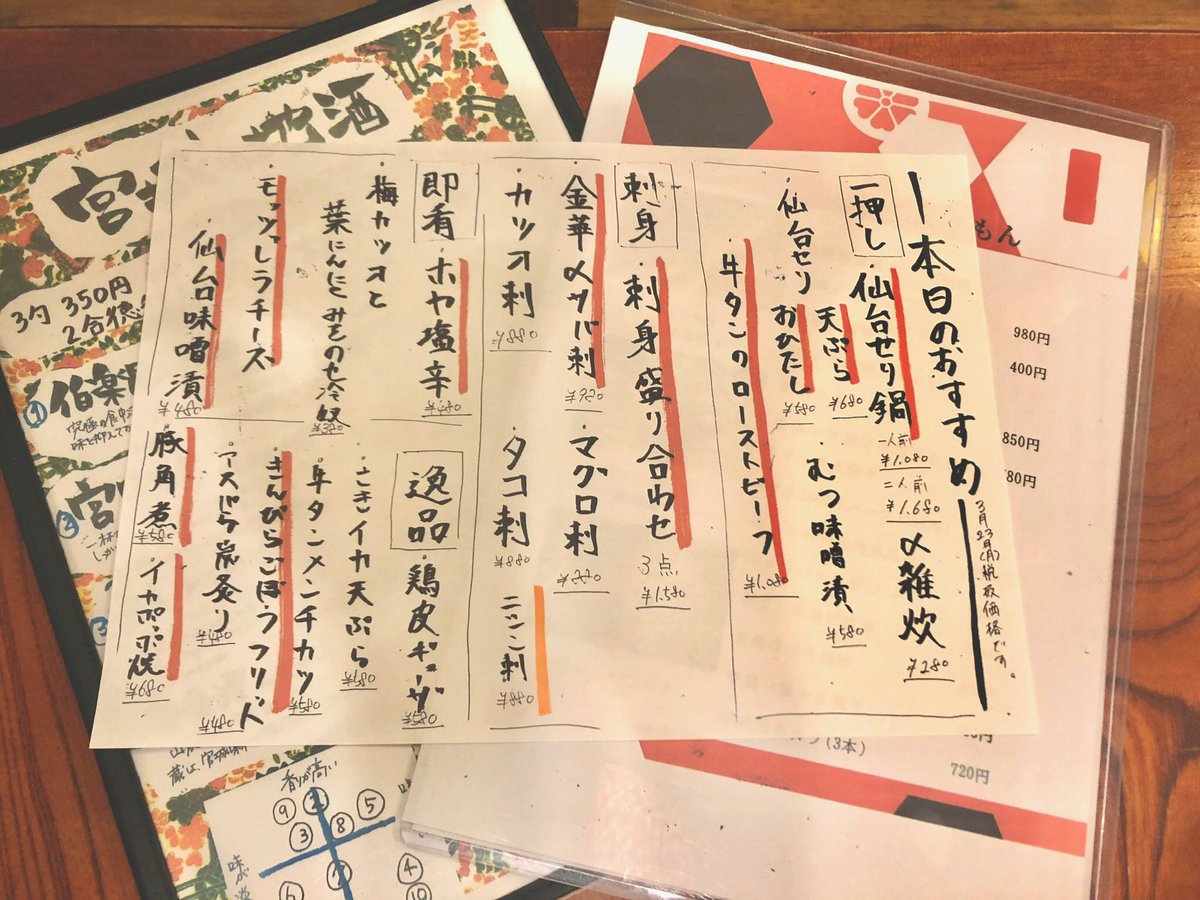 本日のおすすめ
3月23日(月)税抜価格です。
一押し
・仙台せり鍋
一人前
¥1.080
二人前
¥1.680
〆雑炊
¥280
仙台セリ
天ぷら
¥680
おひたし
¥580
むつ味噌漬
¥580
・牛タンのローストビーフ
¥1.080
刺身
・刺身盛り合わせ
3点
¥1.580
金華〆サバ刺
マグロ刺
カツオ刺
¥880
タコ刺
¥880
¥880
即肴
・ホヤ塩辛
・梅カツオと
葉にんにくみその
冷奴
・仙台味噌漬
¥480
逸品
・鶏皮ギョーザ
¥580
・さきイカ天ぷら
・牛タンメンチカツ
¥580
・きんぴらごぼうフリット
¥480
・豚角煮
¥580
・イカポッポ焼
¥680
地酒
宮
3勺 350円
2合徳
① 伯楽
究極の食中
②
宮
③
蔵は、宮城
香りが高い
味が
⑨
②
⑤
③
⑧
④
⑥
⑩
もん
980円
400円
850円
(3本)
720円